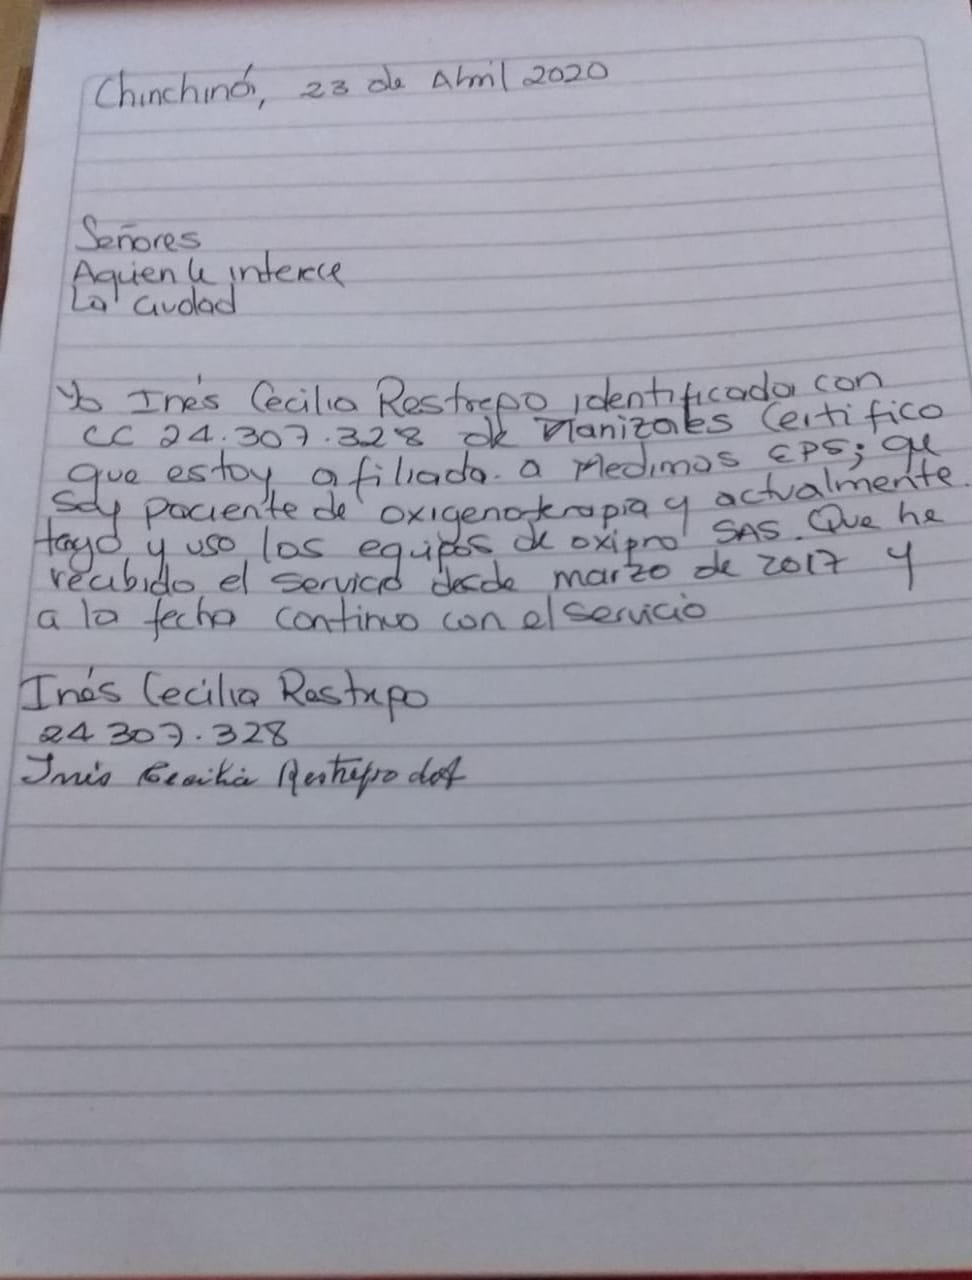 Chinchiná, 23 de Abril 2020
Señores
Aquien le interece
La ciudad
Yo Inés Cecilia Restrepo identificada con
CC 24.307.328 de Manizales Certifico
que estoy afiliada a Medimas EPS; que
soy paciente de oxigenoterapia y actualmente
tengo y uso los equipos de oxipro SAS. Que he
recibido el servicio desde marzo de 2017 y
a la fecha continuo con el servicio
Inés Cecilia Restrepo
24 307.328
Inés Cecilia Restrepo